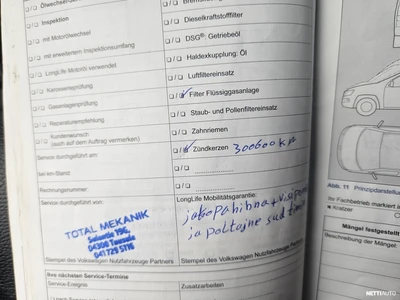 Ölwechselservice
Inspektion
mit Motorölwechsel
mit erweitertem Inspektionsumfang
LongLife Motoröl verwendet
Karosserieprüfung
Gasanlagenprüfung
Reparaturempfehlung
Kundenwunsch
(auch auf dem Auftrag vermerken)
Service durchgeführt am:
bei km-Stand:
Service durchgeführt von:
Rechnungsnummer:
TOTAL MEKANIK
04300 Tuusula
Stempel des Volkswagen Nutzfahrzeuge Partners
Ihre nächsten Service-Termine
Service-Ereignis
Dieselkraftstofffilter
DSG®: Getriebeöl
Haldexkupplung: Öl
Luftfiltereinsatz
Filter Flüssiggasanlage
Staub- und Pollenfiltereinsatz
Zahnriemen
Zündkerzen 300600 km
LongLife Mobilitätsgarantie:
jakopähihna +
ja polttoine
Stempel des Volkswagen Nutzfahrzeuge Partners
Zusatzarbeiten
Abb. 11 Prinzipdarstellu
Ihr Fachbetrieb markiert
Kratzer
Mängel festgestellt
Beschreibung der Mängel:
NETTIAUTO